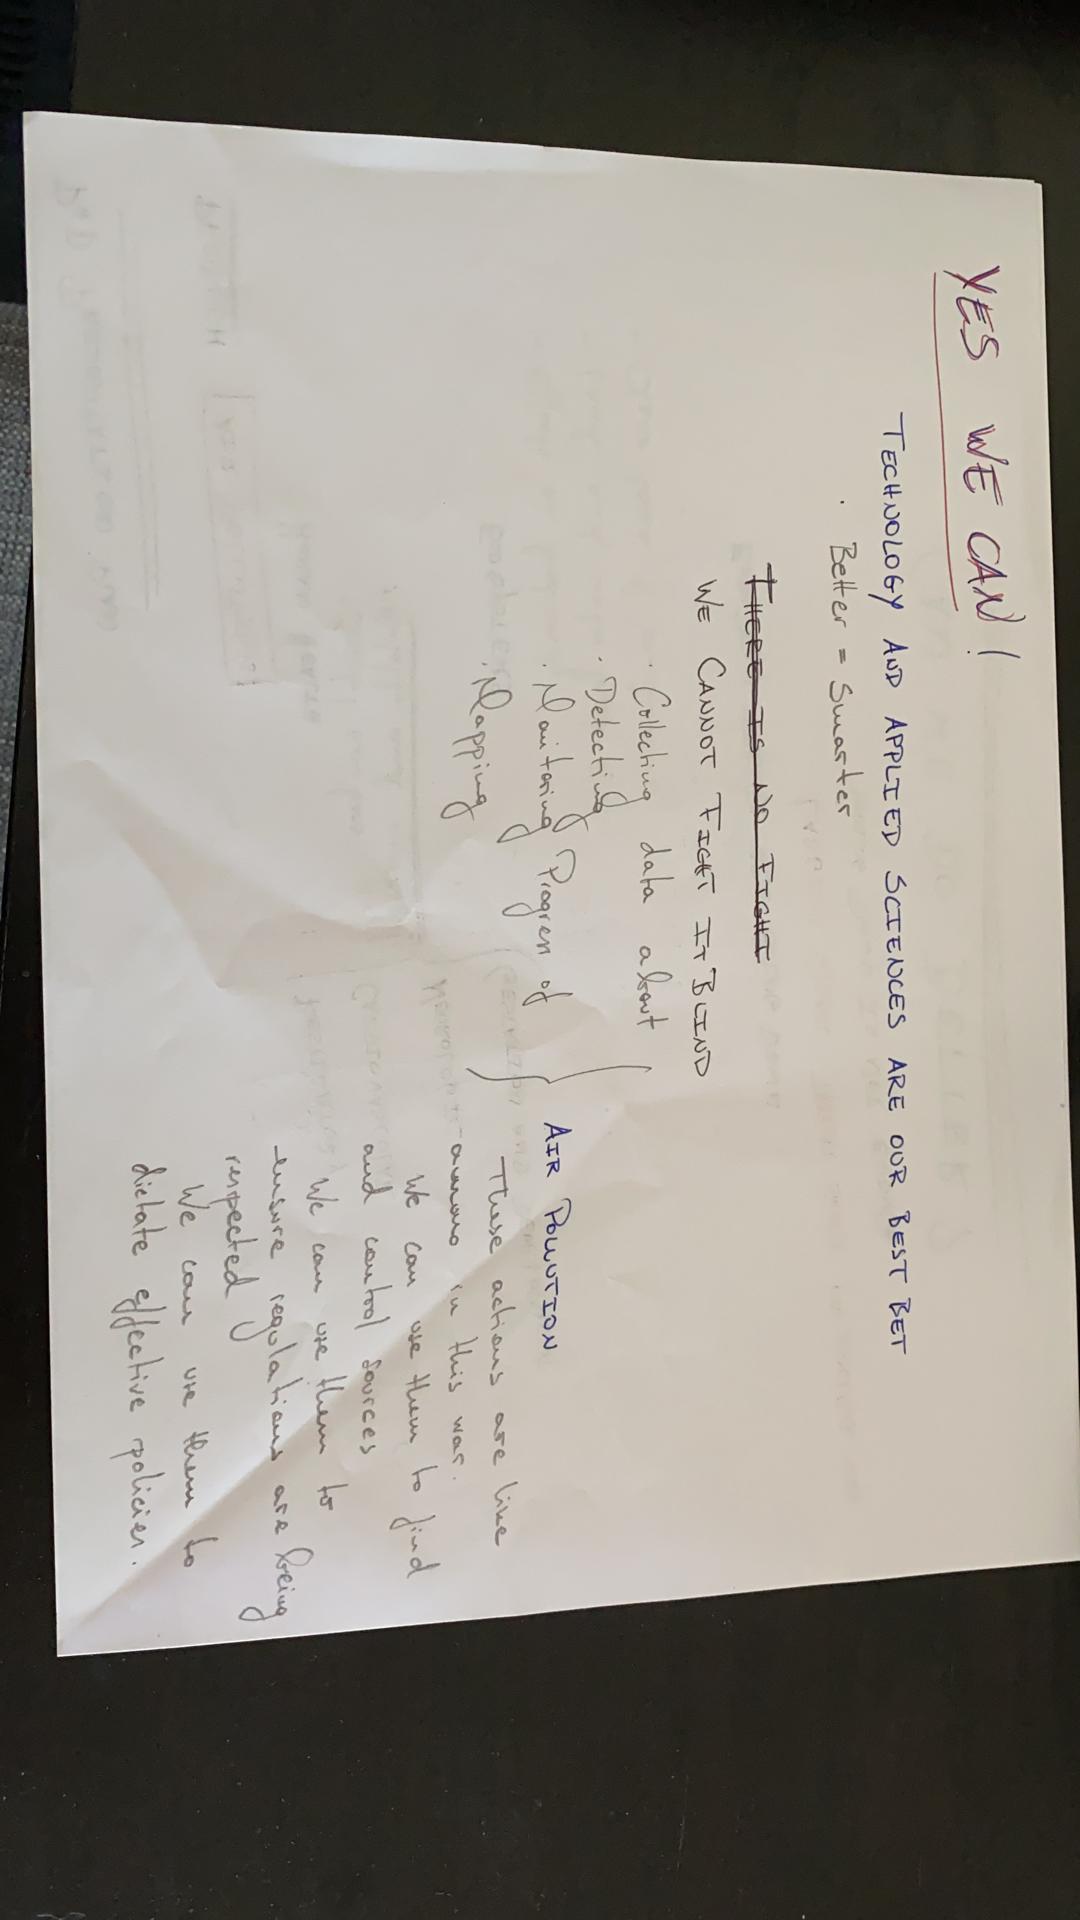 YES WE CAN!
TECHNOLOGY AND APPLIED SCIENCES ARE OUR BEST BET
· Better = Smarter
THERE IS NO FIGHT
WE CANNOT FIGHT IT BLIND
· Collecting data about
· Detecting
· Monitoring Progress of
· Mapping
AIR POLLUTION
These actions are like
in this war.
We can use them to find
and control sources
We can use them to
ensure regulations are being
respected
We can use them to
dictate effective policies.